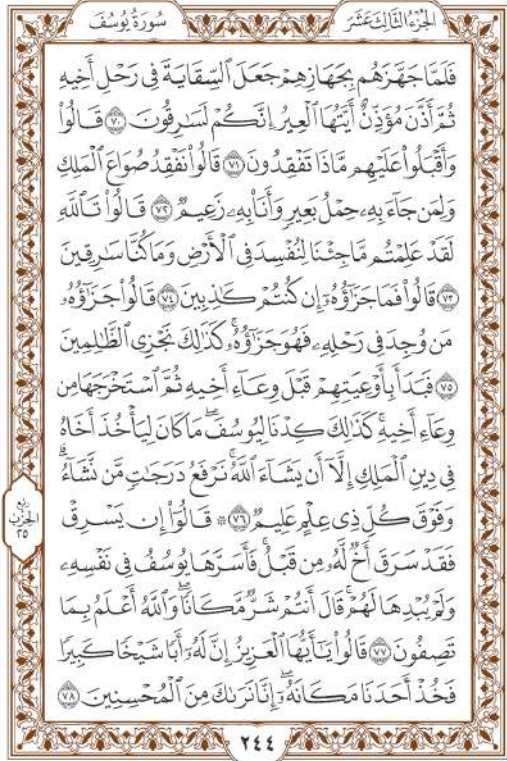 الجزء الثالث عشر
سورة يوسف
فَلَمَّا جَهَّزَهُم بِجَهَازِهِمْ جَعَلَ ٱلسِّقَايَةَ فِى رَحْلِ أَخِيهِ
ثُمَّ أَذَّنَ مُؤَذِّنٌ أَيَّتُهَا ٱلْعِيرُ إِنَّكُمْ لَسَٰرِقُونَ ٧٠ قَالُوا۟
وَأَقْبَلُوا۟ عَلَيْهِم مَّاذَا تَفْقِدُونَ ٧١ قَالُوا۟ نَفْقِدُ صُوَاعَ ٱلْمَلِكِ
وَلِمَن جَآءَ بِهِۦ حِمْلُ بَعِيرٍ وَأَنَا۠ بِهِۦ زَعِيمٌ ٧٢ قَالُوا۟ تَٱللَّهِ
لَقَدْ عَلِمْتُم مَّا جِئْنَا لِنُفْسِدَ فِى ٱلْأَرْضِ وَمَا كُنَّا سَٰرِقِينَ
٧٣ قَالُوا۟ فَمَا جَزَٰٓؤُهُۥٓ إِن كُنتُمْ كَٰذِبِينَ ٧٤ قَالُوا۟ جَزَٰٓؤُهُۥ
مَن وُجِدَ فِى رَحْلِهِۦ فَهُوَ جَزَٰٓؤُهُۥ ۚ كَذَٰلِكَ نَجْزِى ٱلظَّٰلِمِينَ
٧٥ فَبَدَأَ بِأَوْعِيَتِهِمْ قَبْلَ وِعَآءِ أَخِيهِ ثُمَّ ٱسْتَخْرَجَهَا مِن
وِعَآءِ أَخِيهِ ۚ كَذَٰلِكَ كِدْنَا لِيُوسُفَ ۖ مَا كَانَ لِيَأْخُذَ أَخَاهُ
فِى دِينِ ٱلْمَلِكِ إِلَّآ أَن يَشَآءَ ٱللَّهُ ۚ نَرْفَعُ دَرَجَٰتٍ مَّن نَّشَآءُ ۗ
وَفَوْقَ كُلِّ ذِى عِلْمٍ عَلِيمٌ ٧٦ ۞ قَالُوٓا۟ إِن يَسْرِقْ
فَقَدْ سَرَقَ أَخٌ لَّهُۥ مِن قَبْلُ ۚ فَأَسَرَّهَا يُوسُفُ فِى نَفْسِهِۦ
وَلَمْ يُبْدِهَا لَهُمْ ۚ قَالَ أَنتُمْ شَرٌّ مَّكَانًا ۖ وَٱللَّهُ أَعْلَمُ بِمَا
تَصِفُونَ ٧٧ قَالُوا۟ يَٰٓأَيُّهَا ٱلْعَزِيزُ إِنَّ لَهُۥٓ أَبًا شَيْخًا كَبِيرًا
فَخُذْ أَحَدَنَا مَكَانَهُۥٓ ۖ إِنَّا نَرَىٰكَ مِنَ ٱلْمُحْسِنِينَ ٧٨
ربع
الحزب
٢٥
٢٤٤